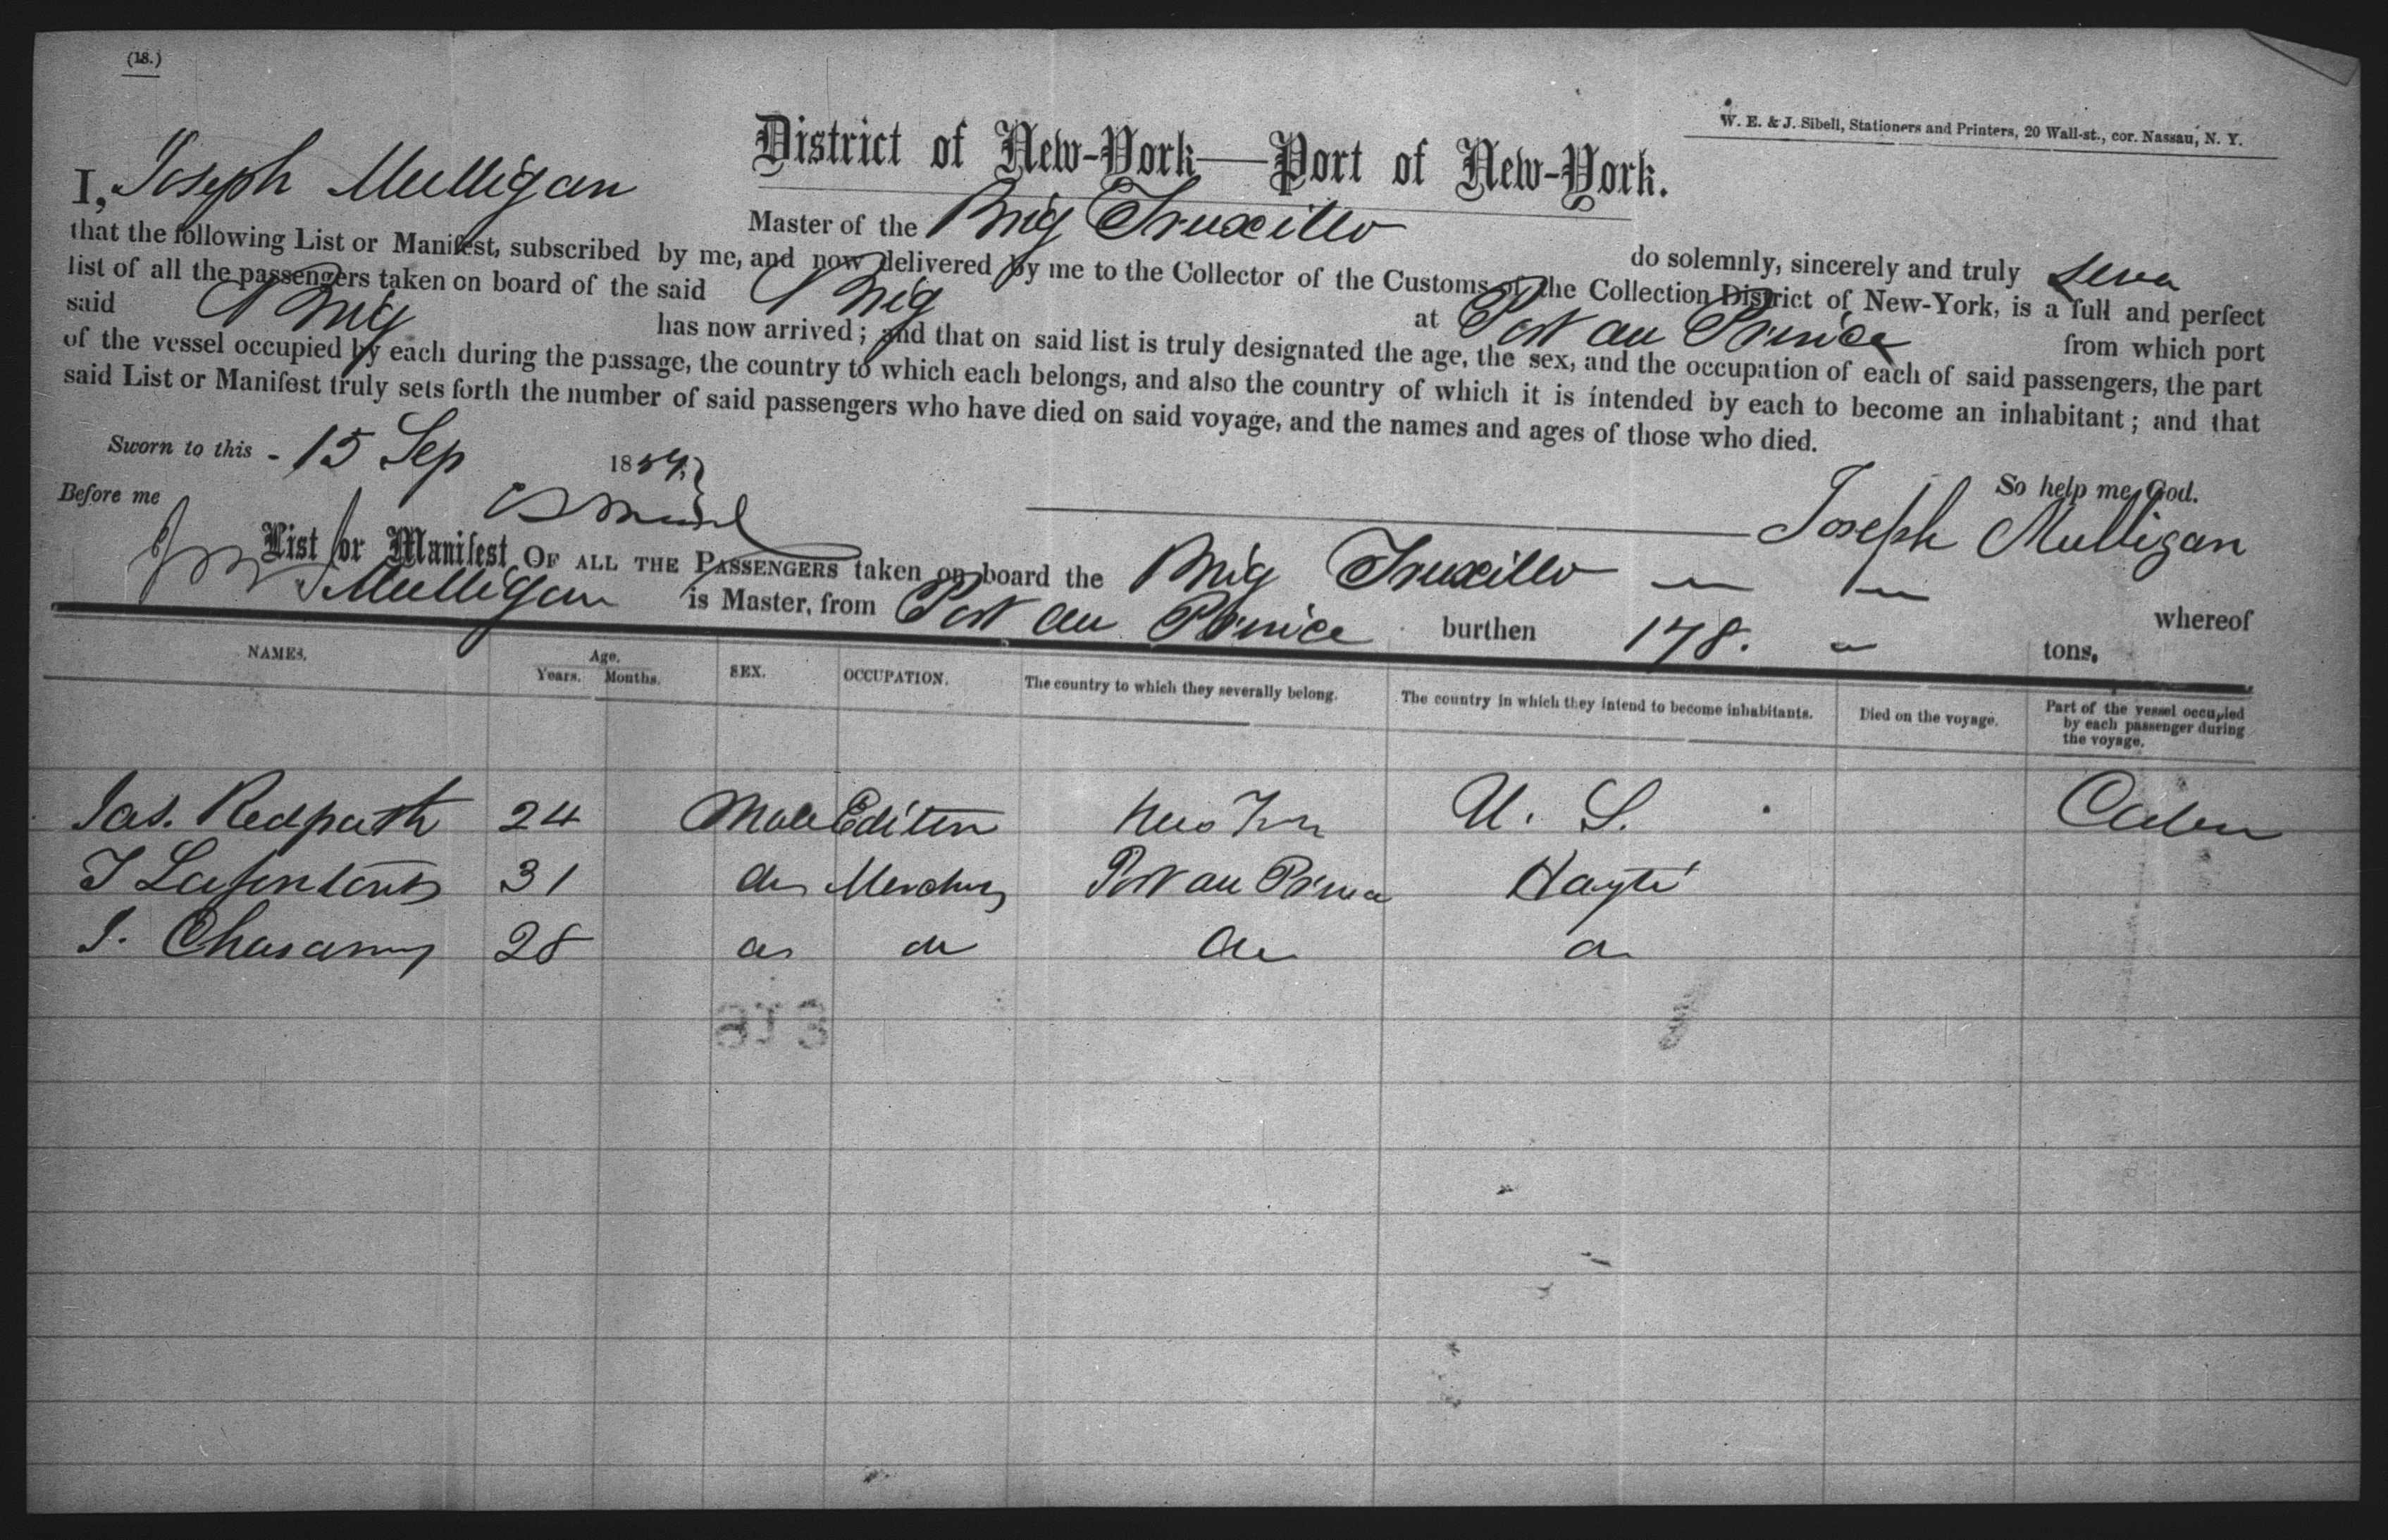 (18.)
W. E. & J. Sibell, Stationers and Printers, 20 Wall-st., cor. Nassau, N. Y.
District of New-York—Port of New-York.
I, Joseph Mulligan Master of the Brig Truxillo do solemnly, sincerely and truly swea
that the following List or Manifest, subscribed by me, and now delivered by me to the Collector of the Customs of the Collection District of New-York, is a full and perfect
list of all the passengers taken on board of the said Brig at Port au Prince from which port
said Brig has now arrived; and that on said list is truly designated the age, the sex, and the occupation of each of said passengers, the part
of the vessel occupied by each during the passage, the country to which each belongs, and also the country of which it is intended by each to become an inhabitant; and that
said List or Manifest truly sets forth the number of said passengers who have died on said voyage, and the names and ages of those who died.
Sworn to this - 15 Sep 18
So help me God.
Before me
Joseph Mulligan
List or Manifest OF ALL THE PASSENGERS taken on board the Brig Truxillo whereof
Mulligan is Master, from Port au Prince burthen 178. tons.
NAMES. Age. Years. Months. SEX. OCCUPATION. The country to which they severally belong. The country in which they intend to become inhabitants. Died on the voyage. Part of the vessel occupied by each passenger during the voyage.
Jas. Redpath 24 Male Editor New York U. S. Cabin
31 do Merchant Port au Prince Hayti
28 do do do do